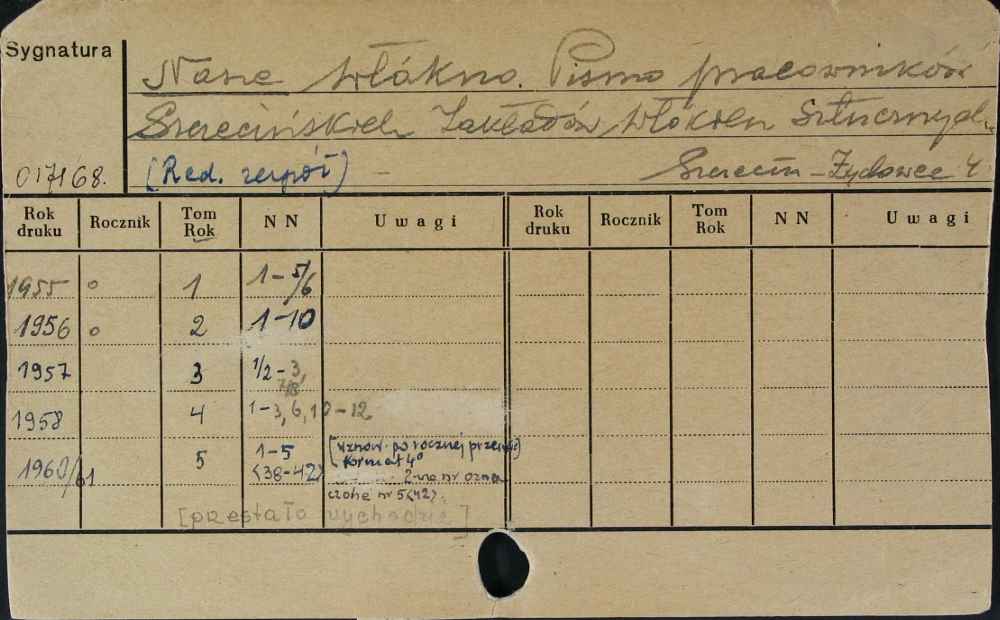 Sygnatura
Nasze Włókno. Pismo pracowników
Szczecińskich Zakładów Włókien Sztucznych.
017168. (Red. zespół) — Szczecin-Żydowce 4
Rok druku Rocznik Tom Rok N N Uwagi Rok druku Rocznik Tom Rok N N Uwagi
1955 o 1 1-5/6
1956 o 2 1-10
1957 3 1/2-3,
7/8
1958 4 1-3, 6, 10-12
1960/61 5 1-5 [wznow. po rocznej przerwie)
<38-42> format 4°
2-wa nr ozna
czone nr 5<42>.
[przestało wychodzić]